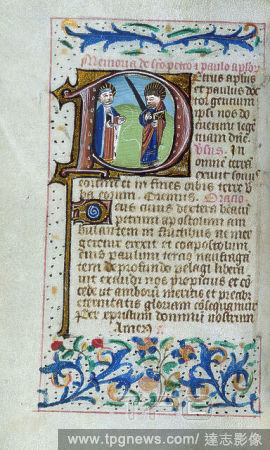 Memoria de sco petro & paulo apłor
Petrus aplus
et paulus doc
tor gentium
ipsi nos do
cuerunt lege
tuam dne.
Vsus. In
omnē terrā
exiuit sonus
eorum et in fines orbis terre v
ba eorum Oremus. Oracio
Deus cuius dextera beatū
petrum apostolum am
bulantem in fluctibus ne mer
geretur erexit et coapostolum
eius paulum tercio naufragā
tem de profundo pelagi libera
uit exaudi nos propicius et cō
cede ut amborū meritis et precibz
eternitatis gloriam cōsequamur
Per xpristum dominū nostrum
Amen
www.tpgnews.com/影像 / 達志影像